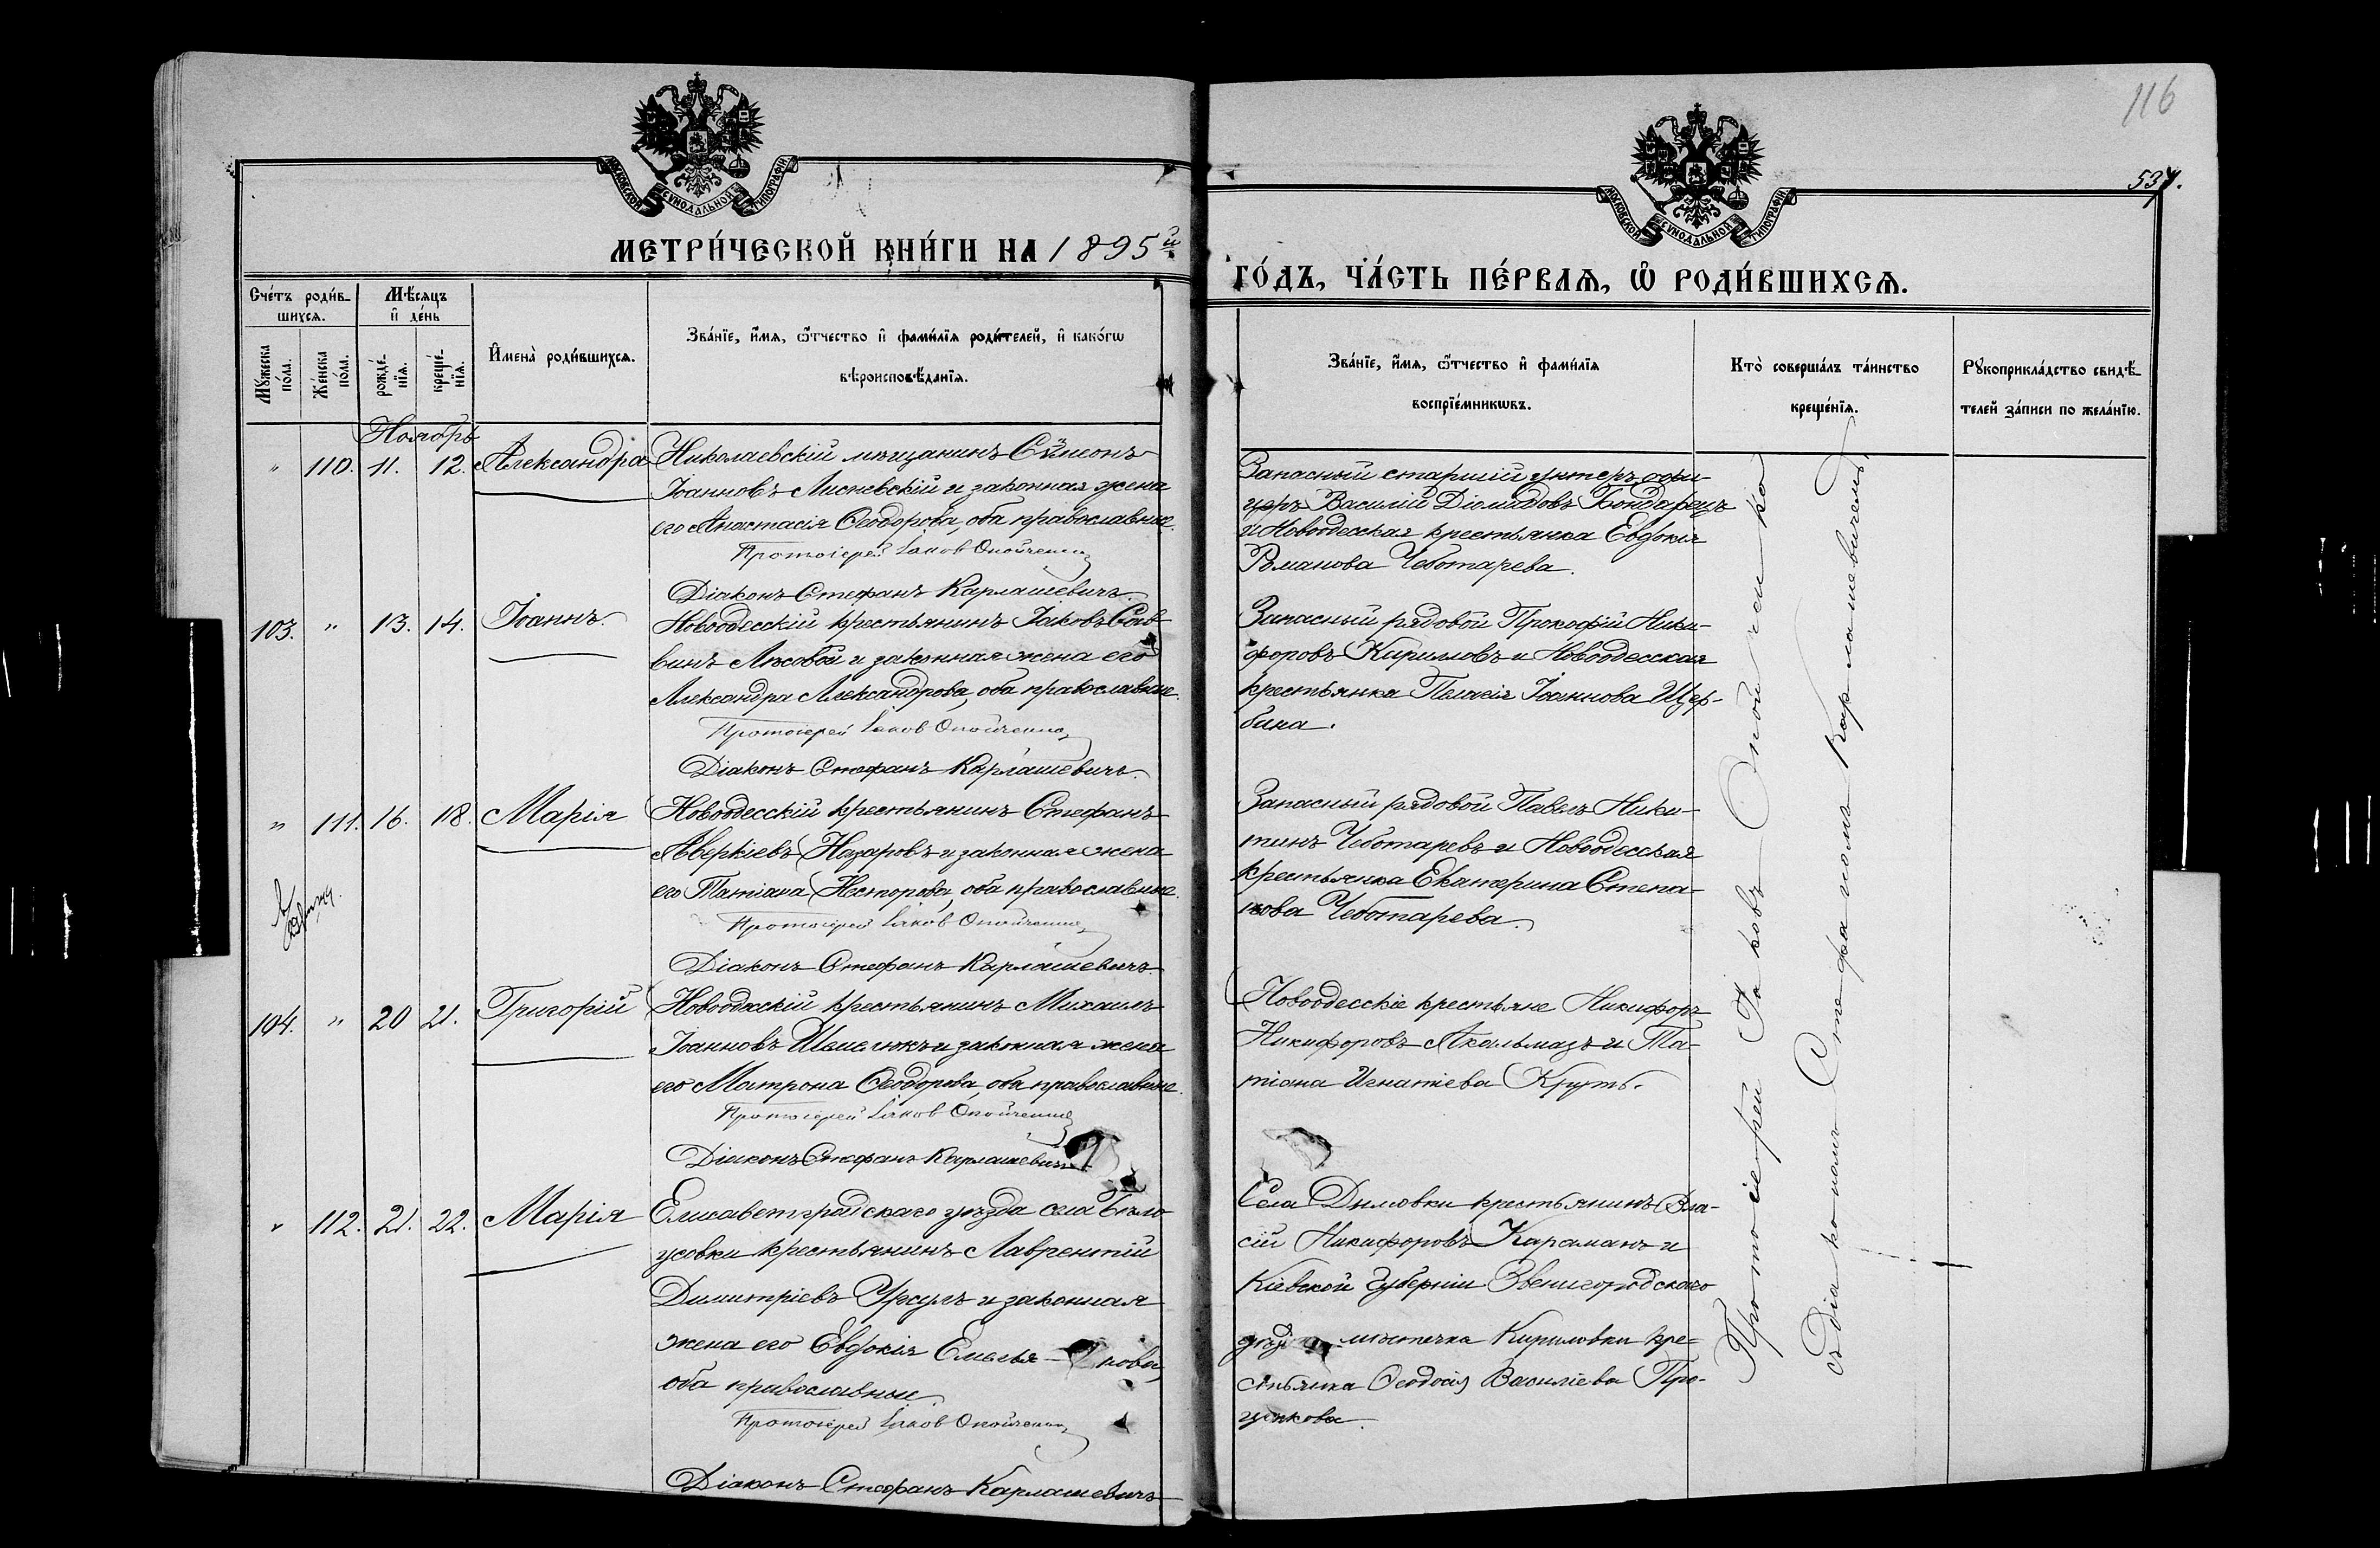 116
537.
МОСКОВСКОЙ СУНОДАЛЬНОЙ ТИПОГРАФІИ
МОСКОВСКОЙ СУНОДАЛЬНОЙ ТИПОГРАФІИ
МЕТРИ́ЧЕСКОЙ КНИ́ГИ НА 1895й
ГО́ДЪ, ЧА́СТЬ ПЕ́РВАѦ, Ѡ РОДИ́ВШИХСѦ.
Сче́тъ роди́в-
шихсѧ.
Мѣ́сѧцъ
и҆ де́нь
Мꙋ́жеска
по́ла.
Же́нска
по́ла.
рожде́-
нїѧ.
креще́-
нїѧ.
И҆мена̀ роди́вшихсѧ.
Зва́нїе, и҆́мѧ, ѻ҆́тчество и҆ фами́лїѧ роди́телей, и҆ како́гѡ
вѣроисповѣ́данїѧ.
Зва́нїе, и҆́мѧ, ѻ҆́тчество и҆ фами́лїѧ
воспрїе́мникѡвъ.
Кто̀ соверша́лъ та́инство
креще́нїѧ.
Рꙋкоприкла́дство свидѣ́-
телей за́писи по жела́нїю.
Ноябрь
" 110. 11. 12. Александра
Николаевскій мѣщанинъ Сѵмеонъ
Іоанновъ Лисневскій и законная жена
его Анастасія Ѳеодорова, оба православные.
Протоіерей Іаков Опойченко
Діаконъ Стефанъ Карлашевичъ.
Запасный старшій унтеръ офи-
церъ Василій Діомидовъ Бондарецъ
и Новоодесская крестьянка Евдокія
Романова Чеботарева.
103. " 13. 14. Іоаннъ.
Новоодесскій крестьянинъ Іаковъ Сав-
винъ Лѣсовой и законная жена его
Александра Александрова, оба православные.
Протоіерей Іаков Опойченко
Діаконъ Стефанъ Карлашевичъ.
Запасный рядовой Прокофій Ники-
форовъ Кириловъ и Новоодесская
крестьянка Пелагія Іоаннова Щер-
бина.
" 111. 16. 18. Марія
Новоодесскій крестьянинъ Стефанъ
Аверкіевъ Назаровъ и законная жена
его Татіана Несторова, оба православные.
Протоіерей Іаков Опойченко
Діаконъ Стефанъ Карлашевичъ.
Запасный рядовой Павелъ Ники-
тинъ Чеботаревъ и Новоодесская
крестьянка Екатерина Степа-
нова Чеботарева.
104. " 20 21. Григорій
Новоодесскій крестьянинъ Михаилъ
Іоанновъ и законная жена
его Матрона Ѳеодорова, оба православные.
Протоіерей Іаков Опойченко
Діаконъ Стефанъ Карлашевичъ
Новоодесскіе крестьяне Никифоръ
Никифоровъ Акальмазъ и Та-
тіана Игнатіева Круть.
" 112. 21. 22. Марія
Елисаветградскаго уѣзда села Бѣло-
усовки крестьянинъ Лаврентій
Димитріевъ Урсулъ и законная
жена его Евдокія Емелья-нова,
оба православные
Протоіерей Іаков Опойченко
Діаконъ Стефанъ Карлашевичъ
Села Дымовки крестьянинъ Вла-
сій Никифоровъ Караманъ и
Кіевской губерніи Звенигородскаго
уѣзда мѣстечка Кириловки кре-
стьянка Ѳеодосія Василіева Про-
ценкова.
Протоіерей Іаковъ Опойченко
съ Діакономъ Стефаномъ Карлашевичемъ